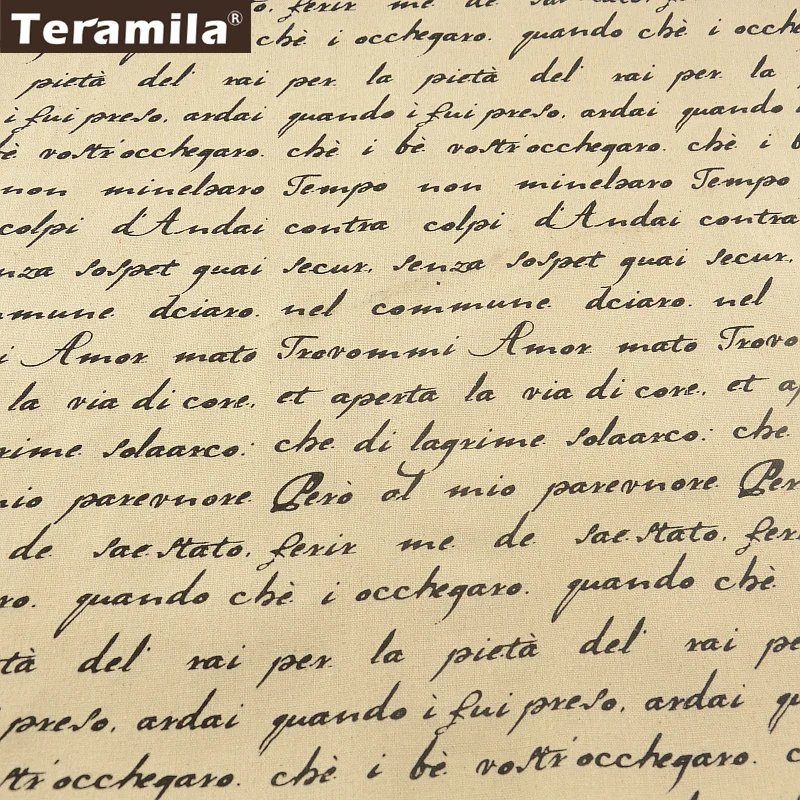 Teramila®
ferir me de sae stato, fe
chè i occhegaro. quando chè i ocche
pietà del' rai per la pietà del' rai per la
i fui preso, ardai quando i fui preso, ardai quando
bè vostr'occhegaro. chè i bè vostr'occhegaro. chè i b
non minelsaro Tempo non minelsaro Tempo
colpi d'Andai contra colpi d'Andai contra
nza sospet guai secur, senza sospet guai secur,
mmune dciaro. nel commune dciaro. nel
i Amor mato Trovommi Amor mato Trovo
la via di core, et aperta la via di core, et ap
rime solaarco: che di lagrime solaarco: che
mio parevnore Però al mio parevnore Per
de sae stato, ferir me de sae stato, feri
ro. quando chè i occhegaro. quando chè
tà del' rai per la pietà del' rai pe
preso, ardai quando i fui preso, ardai qu
str'occhegaro. chè i bè vostr'occhegaro. c